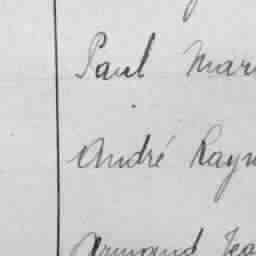 Paul Mari
André Raym
Armand Jea